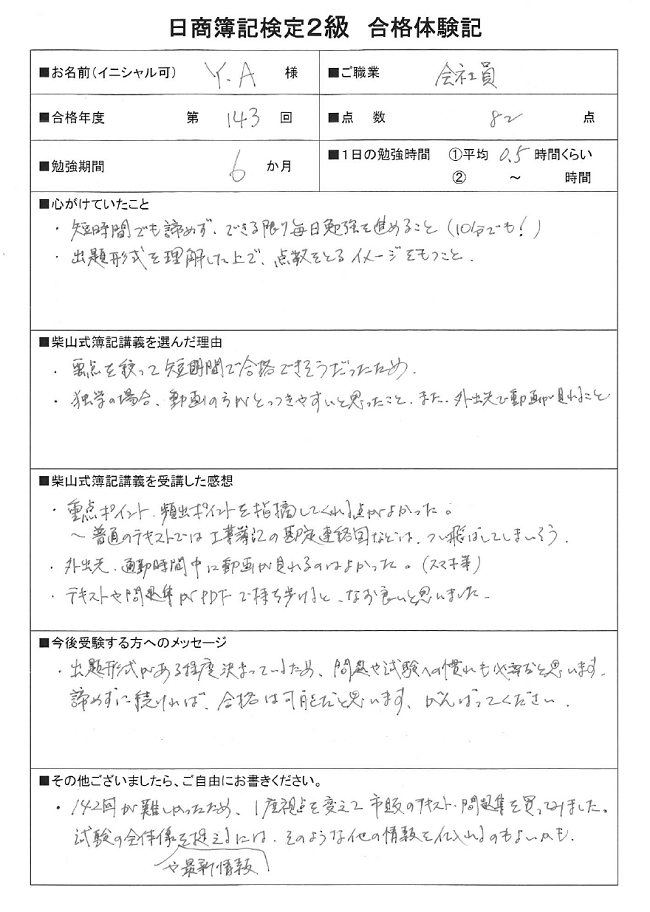 日商簿記検定2級 合格体験記
■お名前(イニシャル可) Y.A 様 ■ご職業 会社員
■合格年度 第 143 回 ■点 数 82 点
■勉強期間 6 か月 ■1日の勉強時間 ①平均 0.5 時間くらい
② ～ 時間
■心がけていたこと
・短時間でも諦めず、できる限り毎日勉強を進めること(10分でも！)
・出題形式を理解した上で、点数をとるイメージをもつこと.
■柴山式簿記講義を選んだ理由
・要点を絞って短期間で合格できそうだったため.
・独学の場合、動画の方がとっつきやすいと思ったこと、また、外出先で動画が見れること
■柴山式簿記講義を受講した感想
・重点ポイント、頻出ポイントを指摘してくれる点がよかった。
～普通のテキストでは工業簿記の勘定連絡図などは、つい飛ばしてしまいそう.
・外出先、通勤時間中に動画が見れるのはよかった。(スマホ等)
・テキストや問題集がPDFで持ち歩けると、なお良いと思いました.
■今後受験する方へのメッセージ
・出題形式がある程度決まっているため、問題や試験への慣れも必要だと思います.
諦めずに続ければ、合格は可能だと思います、がんばってください.
■その他ございましたら、ご自由にお書きください。
・142回が難しかったため、1度視点を変えて市販のテキスト・問題集を買ってみました。
試験の全体像を捉えるには、そのような他の情報を仕入れるのもよいかも.
や最新情報